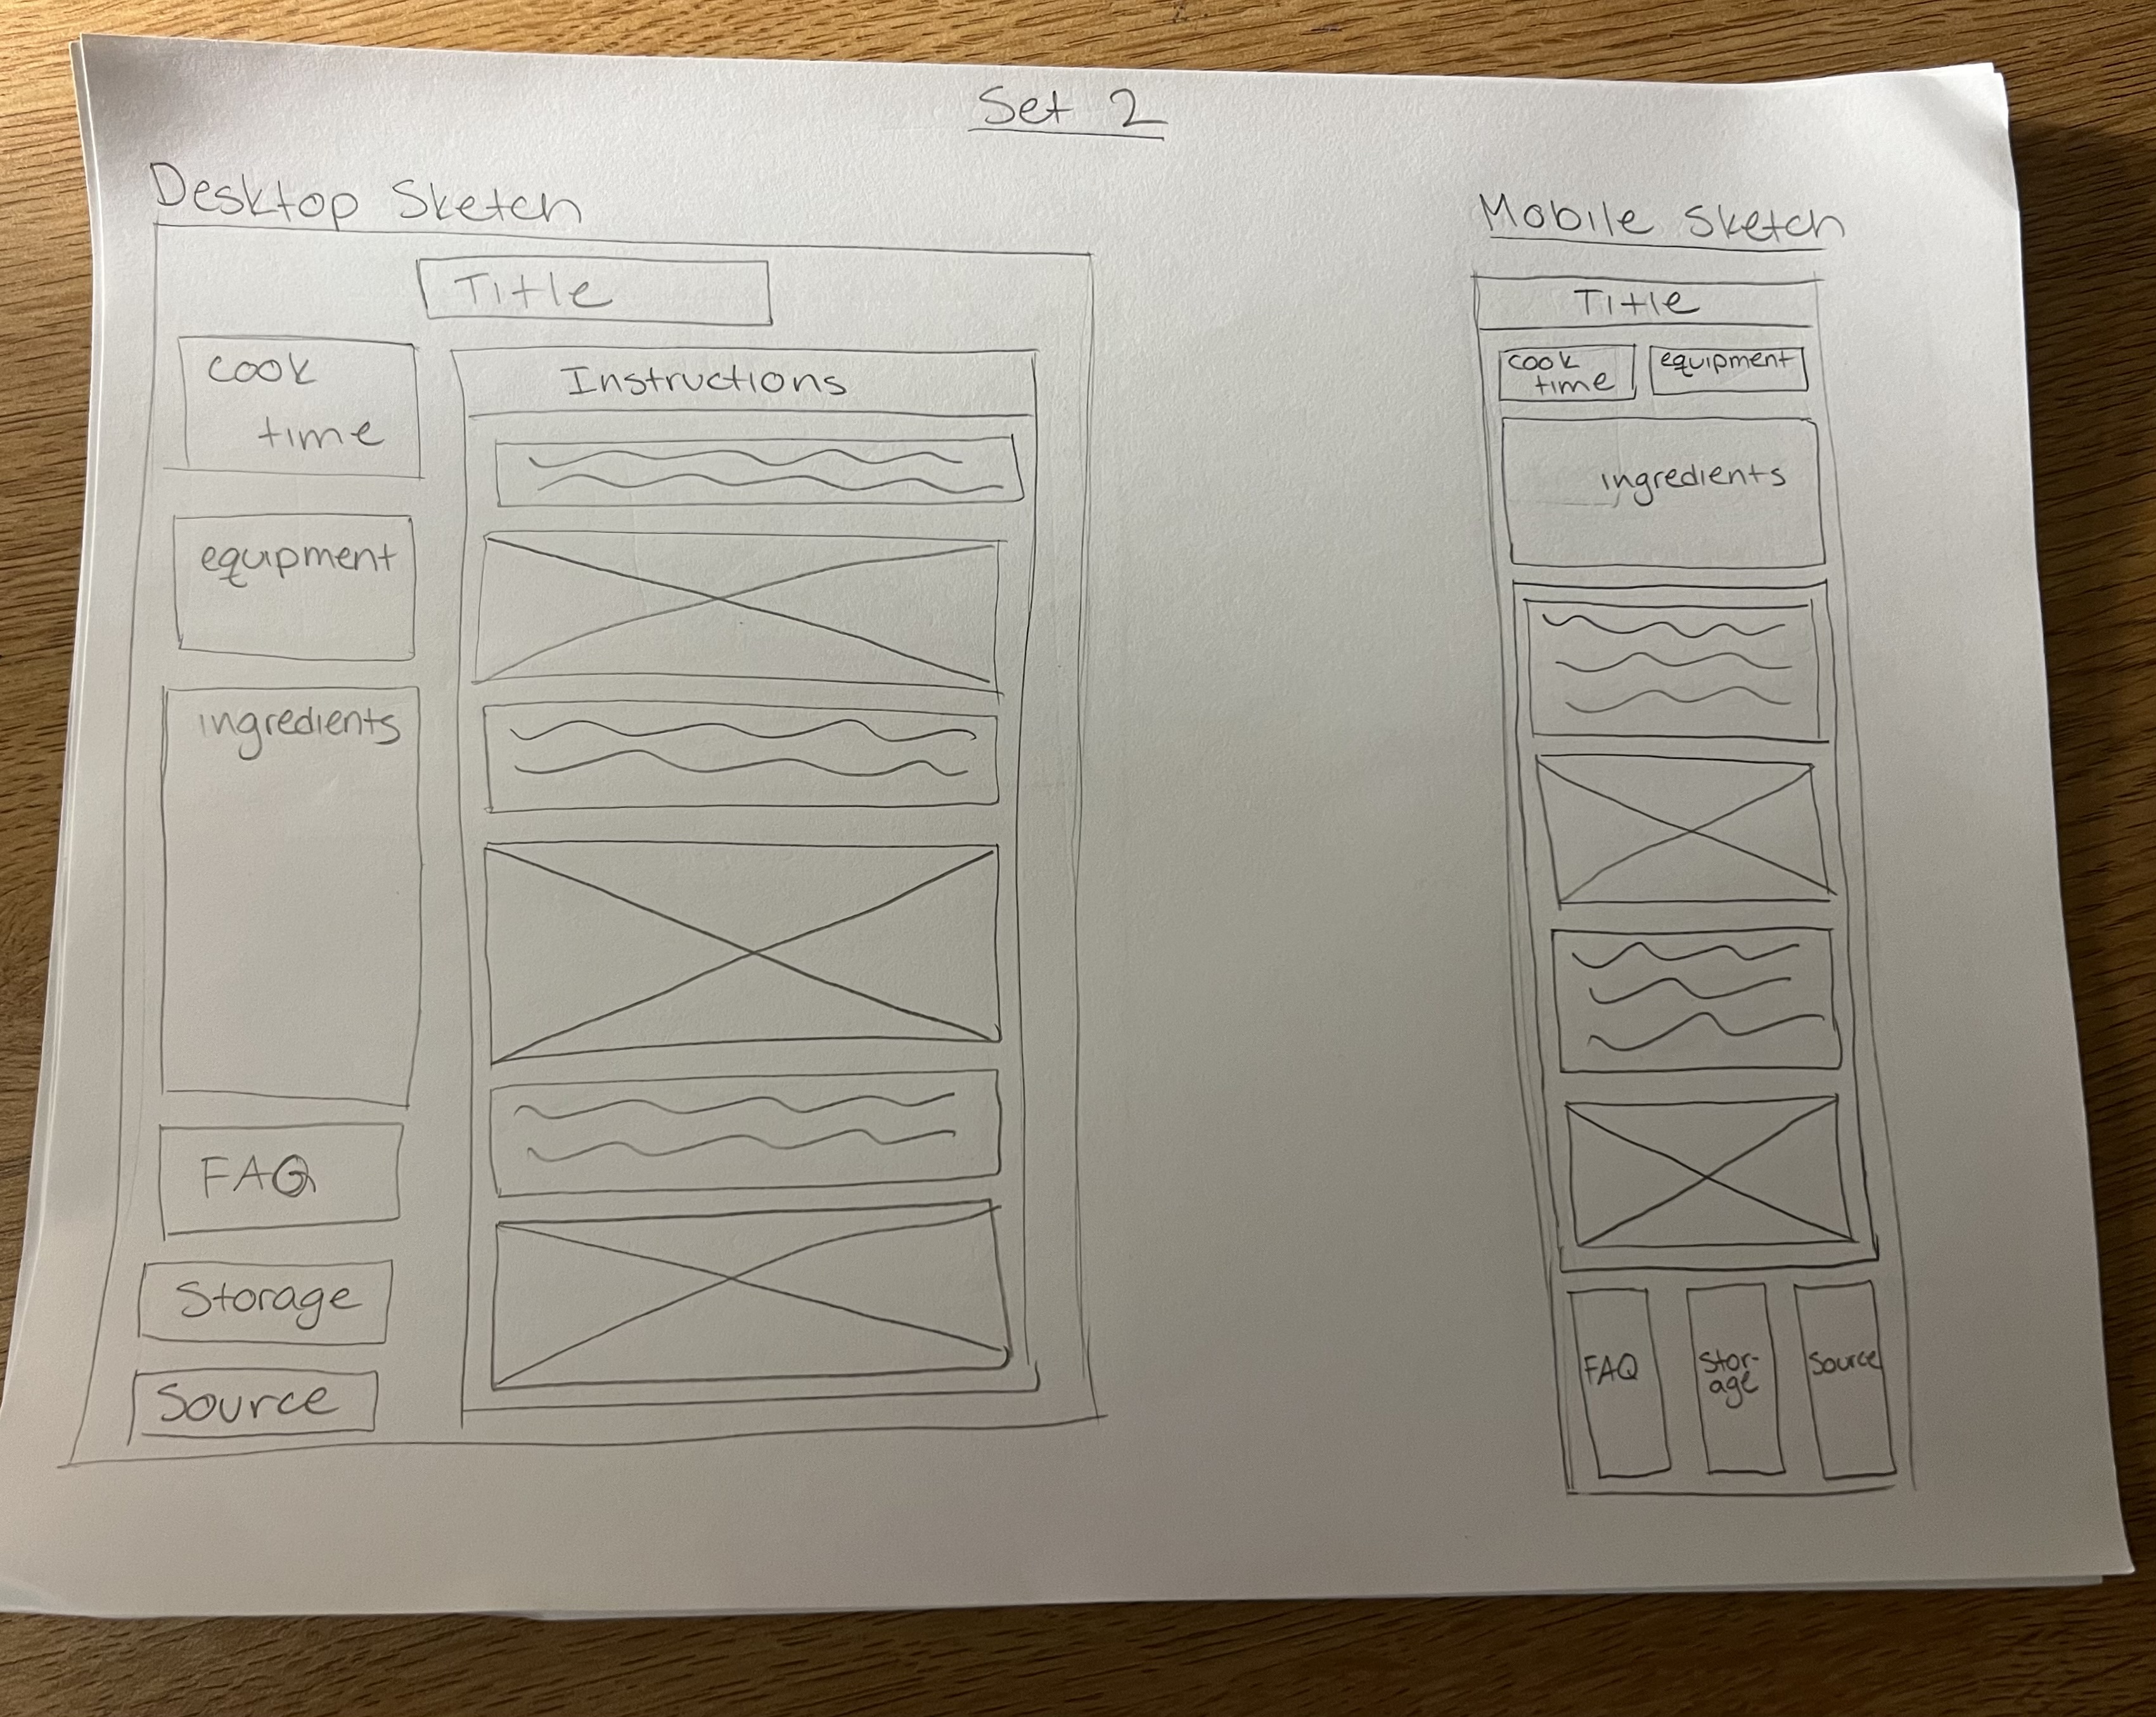 Set 2
Desktop Sketch
Title
cook
time
equipment
ingredients
FAQ
Storage
Source
Instructions
Mobile Sketch
Title
cook
time
equipment
ingredients
FAQ
Stor-
age
Source